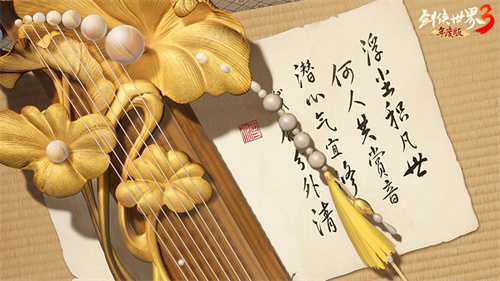 剑侠世界3
年度版
浮尘积凡世
何人共赏音
潜心气宜
外清